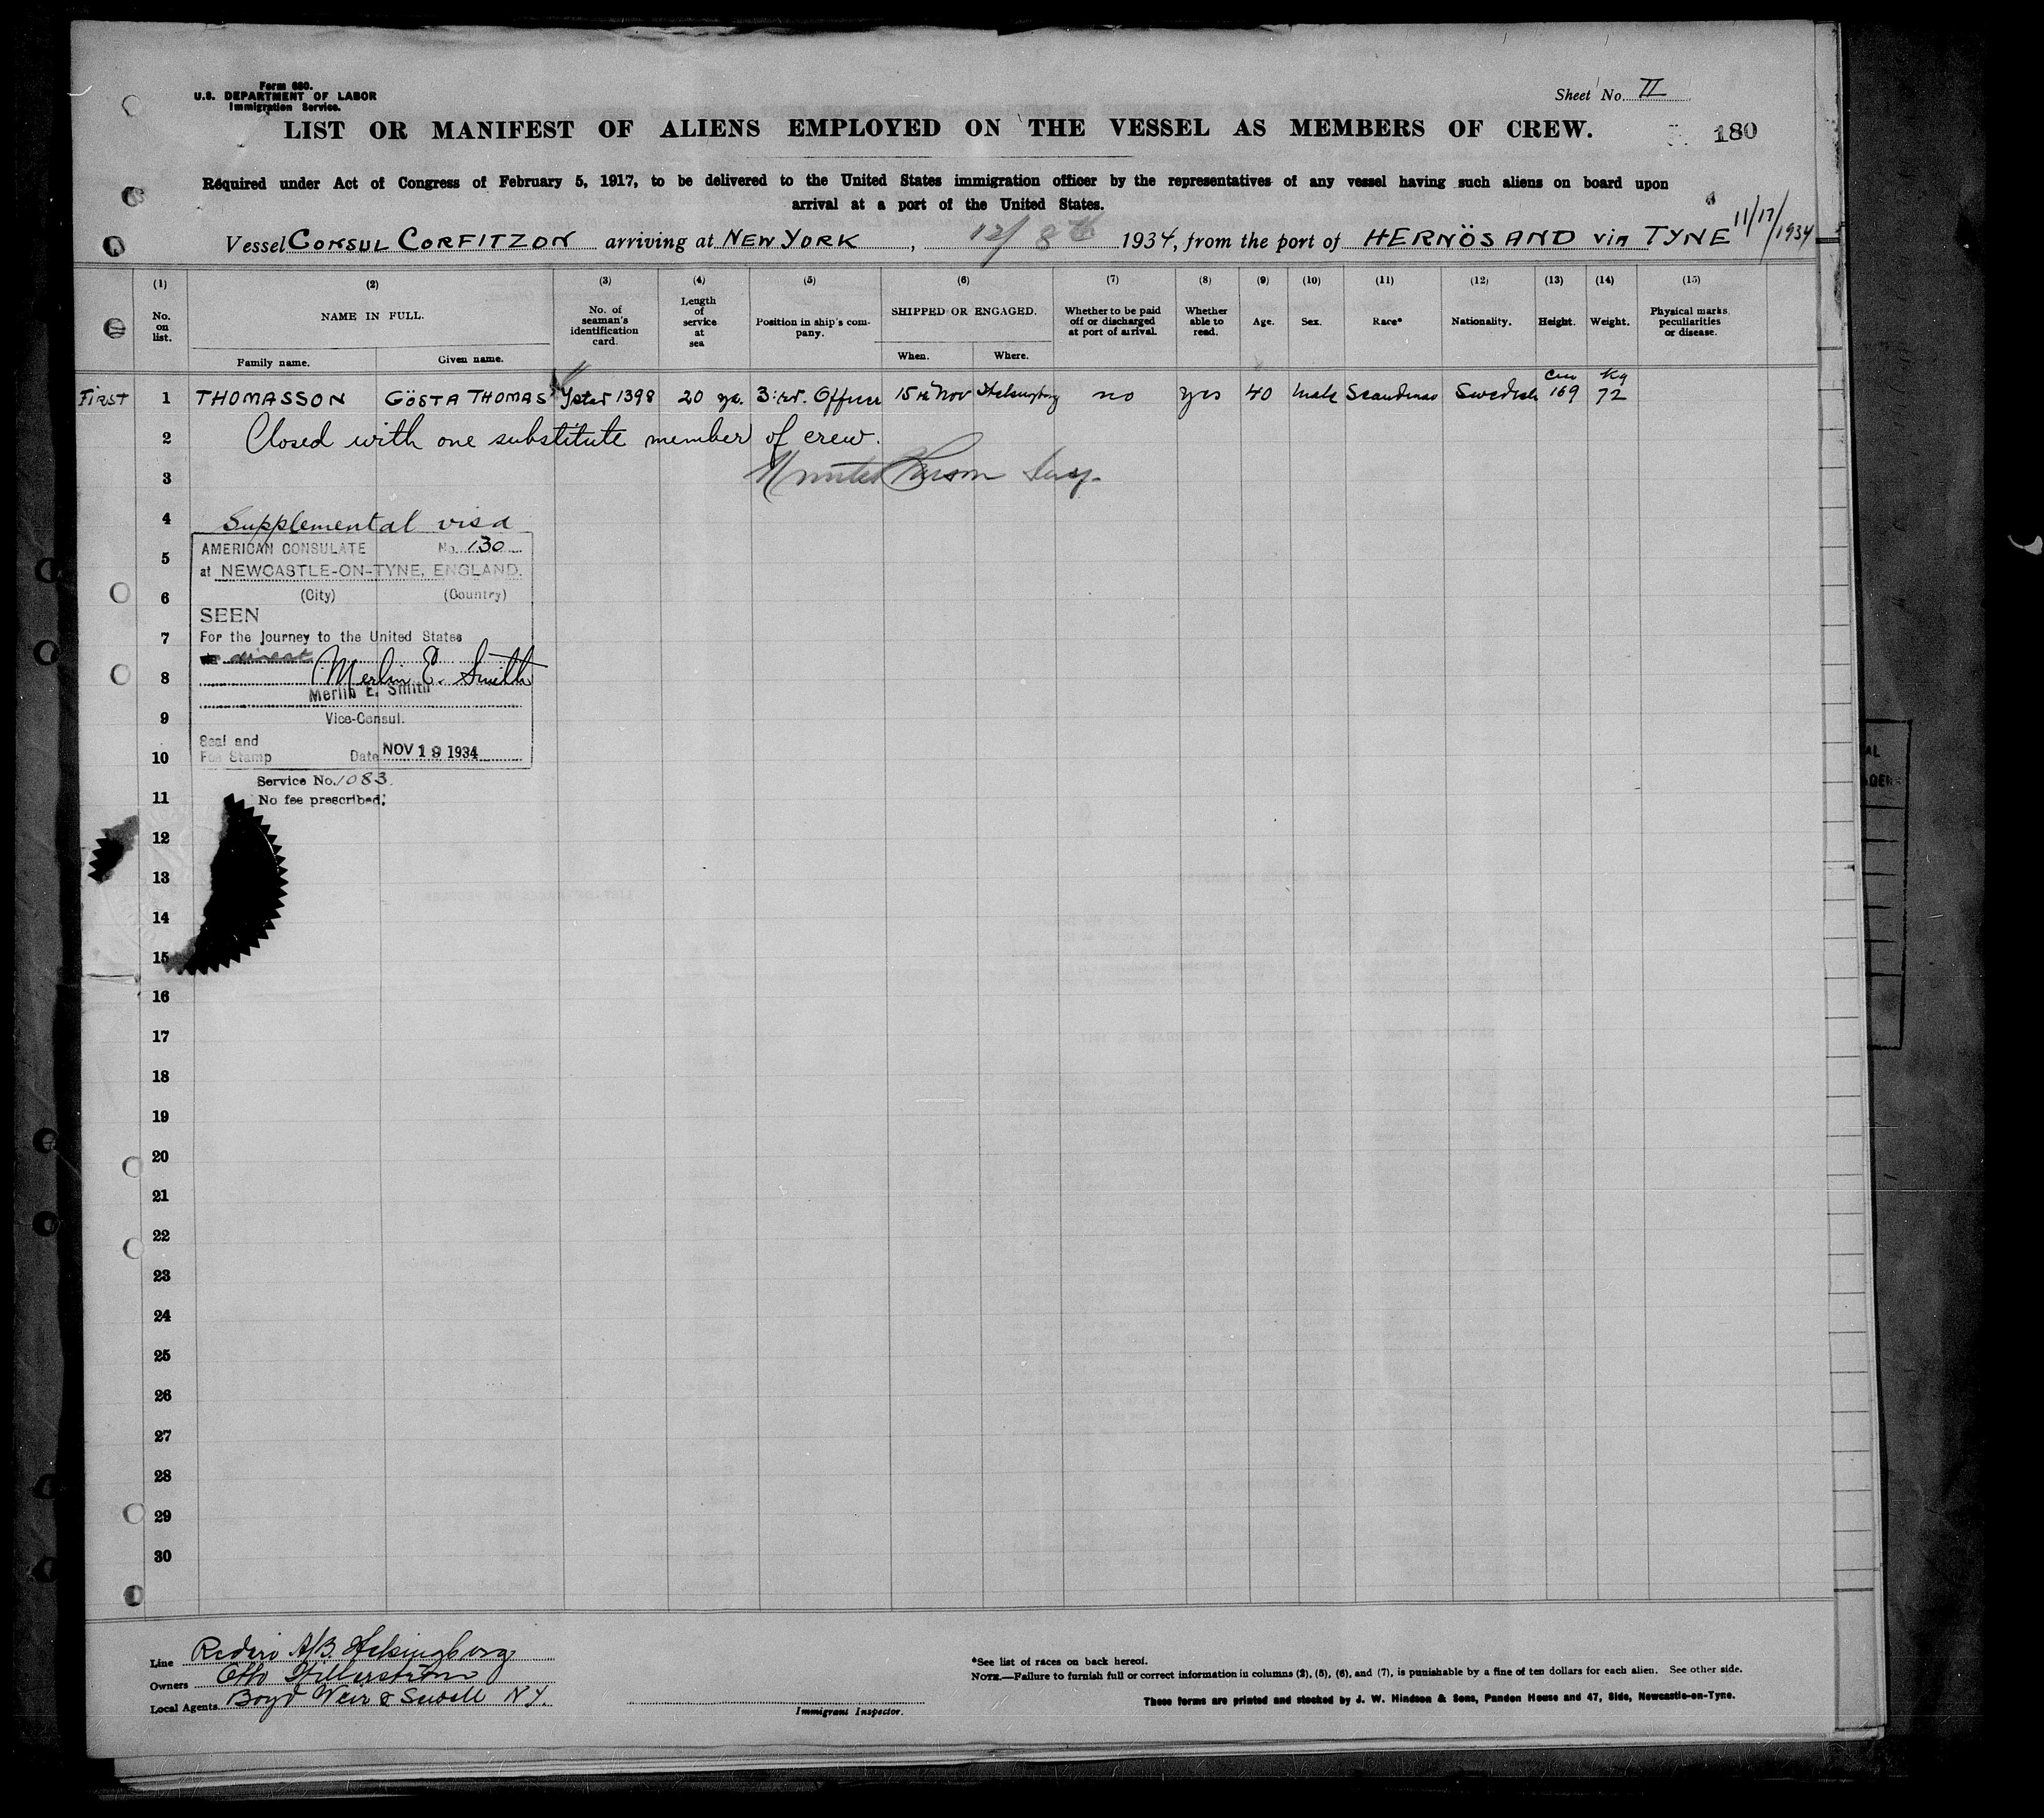 Form 680.
U.S. DEPARTMENT OF LABOR
Immigration Service.
Sheet No. II
LIST OR MANIFEST OF ALIENS EMPLOYED ON THE VESSEL AS MEMBERS OF CREW.
180
Required under Act of Congress of February 5, 1917, to be delivered to the United States immigration officer by the representatives of any vessel having such aliens on board upon
arrival at a port of the United States.
Vessel CONSUL CORFITZON arriving at NEW YORK, 12/8th 1934, from the port of HERNÖSAND via TYNE 11/17/1934
(1) (2) (3) (4) (5) (6) (7) (8) (9) (10) (11) (12) (13) (14) (15)
No. on list.
NAME IN FULL.
Family name. Given name.
No. of seaman's identification card.
Length of service at sea
Position in ship's company.
SHIPPED OR ENGAGED.
When. Where.
Whether to be paid off or discharged at port of arrival.
Whether able to read.
Age. Sex. Race* Nationality. Height. Weight.
Physical marks, peculiarities or disease.
cm kg
FIRST 1 THOMASSON GÖSTA THOMAS Ystad 1398 20 ys. 3:rd. Officer 15th Nov Helsingborg no yes 40 Male Scandinav Swedish 169 72
2 Closed with one substitute member of crew.
3
4 Supplemental visa
AMERICAN CONSULATE No. 130
5
at NEWCASTLE-ON-TYNE, ENGLAND.
6 (City) (Country)
SEEN
7 For the Journey to the United States
via direct
8 Merlin E. Smith
Merlin E. Smith
9 Vice-Consul.
Seal and
10 Fee Stamp Date NOV 19 1934
Service No. 1083
11 No fee prescribed.
12
13
14
15
16
17
18
19
20
21
22
23
24
25
26
27
28
29
30
Line Rederi A/B. Helsingborg
Owners Otto Hillerström
Local Agents Boyd Weir & Sewell N.Y.
Immigrant Inspector.
*See list of races on back hereof.
NOTE.—Failure to furnish full or correct information in columns (2), (5), (6), and (7), is punishable by a fine of ten dollars for each alien. See other side.
These forms are printed and stocked by J. W. Hindson & Sons, Pandon House and 47, Side, Newcastle-on-Tyne.